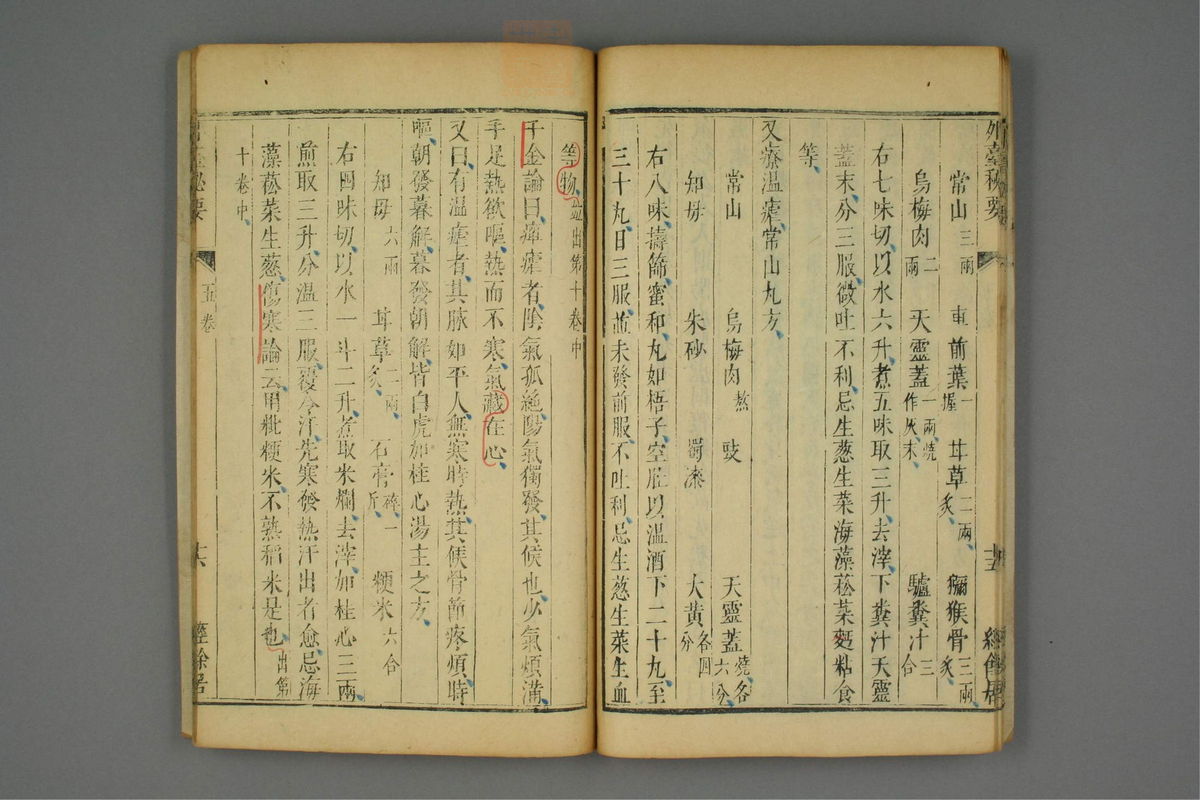 外臺秘要
十五
經餘居
常山三兩 車前葉一握 甘草二兩炙 獼猴骨三兩炙
烏梅肉二兩 天靈蓋一兩燒作灰末 驢糞汁三合
右七味切以水六升煮五味取三升去滓下糞汁天靈
蓋末分三服微吐不利忌生葱生菜海藻菘菜麪粘食
等
又療温瘧常山丸方
常山 烏梅肉熬 豉 天靈蓋燒各六分
知母 朱砂 蜀漆 大黄各四分
右八味擣篩蜜和丸如梧子空肚以温酒下二十丸至
三十丸日三服並未發前服不吐利忌生葱生菜生血
等物並出第十卷中
千金論曰癉瘧者陰氣孤絶陽氣獨發其候也少氣煩滿
手足熱欲嘔熱而不寒氣藏在心
又曰有温瘧者其脉如平人無寒時熱其候骨節疼煩時
嘔朝發暮解暮發朝解皆白虎加桂心湯主之方
知母六兩 甘草二兩炙 石膏碎一斤 粳米六合
右四味切以水一斗二升煮取米爛去滓加桂心三兩
煎取三升分温三服覆令汗先寒發熱汗出者愈忌海
藻菘菜生葱傷寒論云用粃粳米不熟稻米是也出第
十卷中
外臺秘要
五卷
十六
經餘居